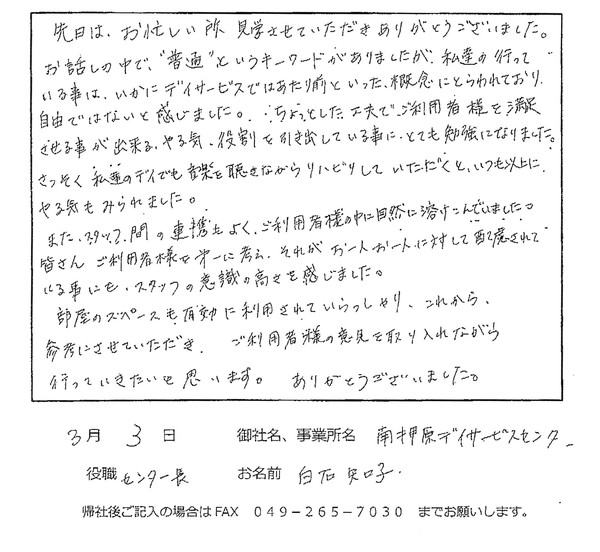 先日は、お忙しい所 見学させていただきありがとうございました。
お話しの中で、"普通"というキーワードがありましたが、私達の行って
いる事は、いかにデイサービスではあたり前といった、概念にとらわれており、
自由ではないと感じました。ちょっとした工夫でご利用者様を満足
させる事が出来る、やる気、役割を引き出している事に、とても勉強になりました。
さっそく私達のデイでも音楽を聴きながらリハビリしていただくと、いつも以上に
やる気もみられました。
また、スタッフ間の連携もよく、ご利用者様の中に自然に溶けこんでいました。
皆さん ご利用者様を第一に考え、それがお一人お一人に対して配慮されて
いる事にも、スタッフの意識の高さを感じました。
部屋のスペースも有効に利用されていらっしゃり、これから、
参考にさせていただき、 ご利用者様の意見を取り入れながら
行っていきたいと思います。 ありがとうございました。
3月 3 日 御社名、事業所名 南押原デイサービスセンター
役職 センター長 お名前 白石
帰社後ご記入の場合はFAX 049-265-7030 までお願いします。